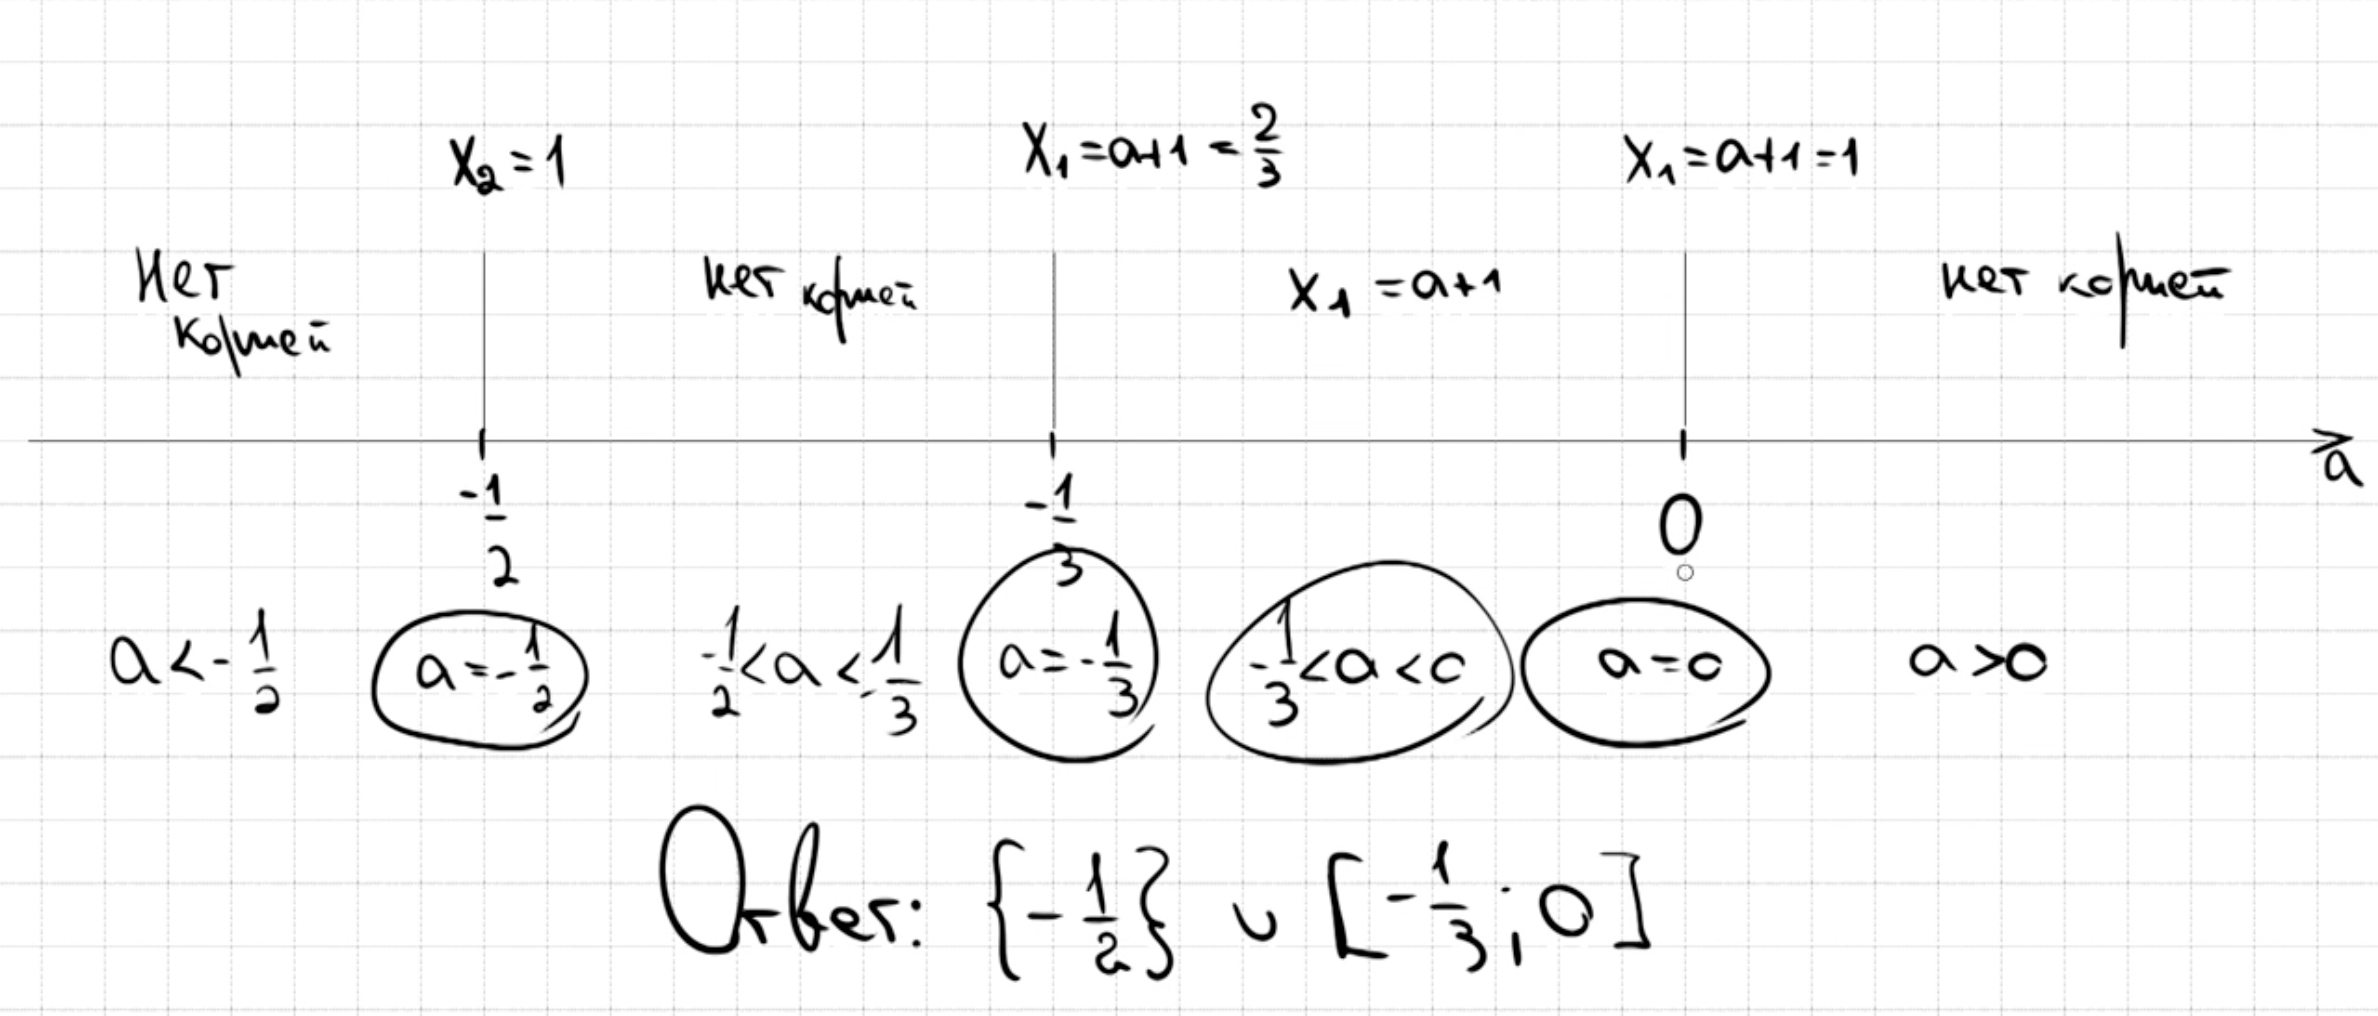 x₂ = 1 x₁ = a+1 = 2/3 x₁ = a+1 = 1
Нет нет корней x₁ = a+1 нет корней
корней
a
-1/2 -1/3 0
a < -1/2 a = -1/2 -1/2 < a < -1/3 a = -1/3 -1/3 < a < 0 a = 0 a > 0
Ответ: {-1/2} ∪ [-1/3; 0]